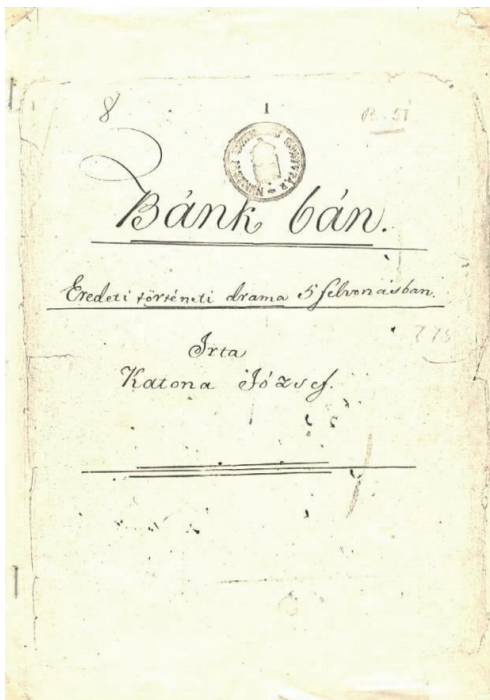 8
1
B. 51
Bánk bán.
Eredeti történeti dráma 5 felvonásban.
Irta
Katona József.